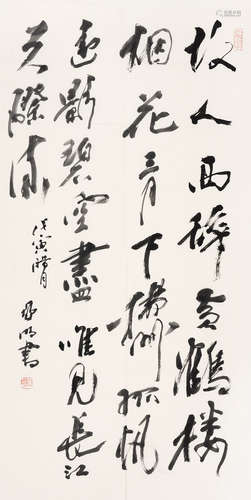 故人西辞黄鹤楼
烟花三月下扬州孤帆
远影碧空尽唯见长江
天际流
戊寅腊月
书